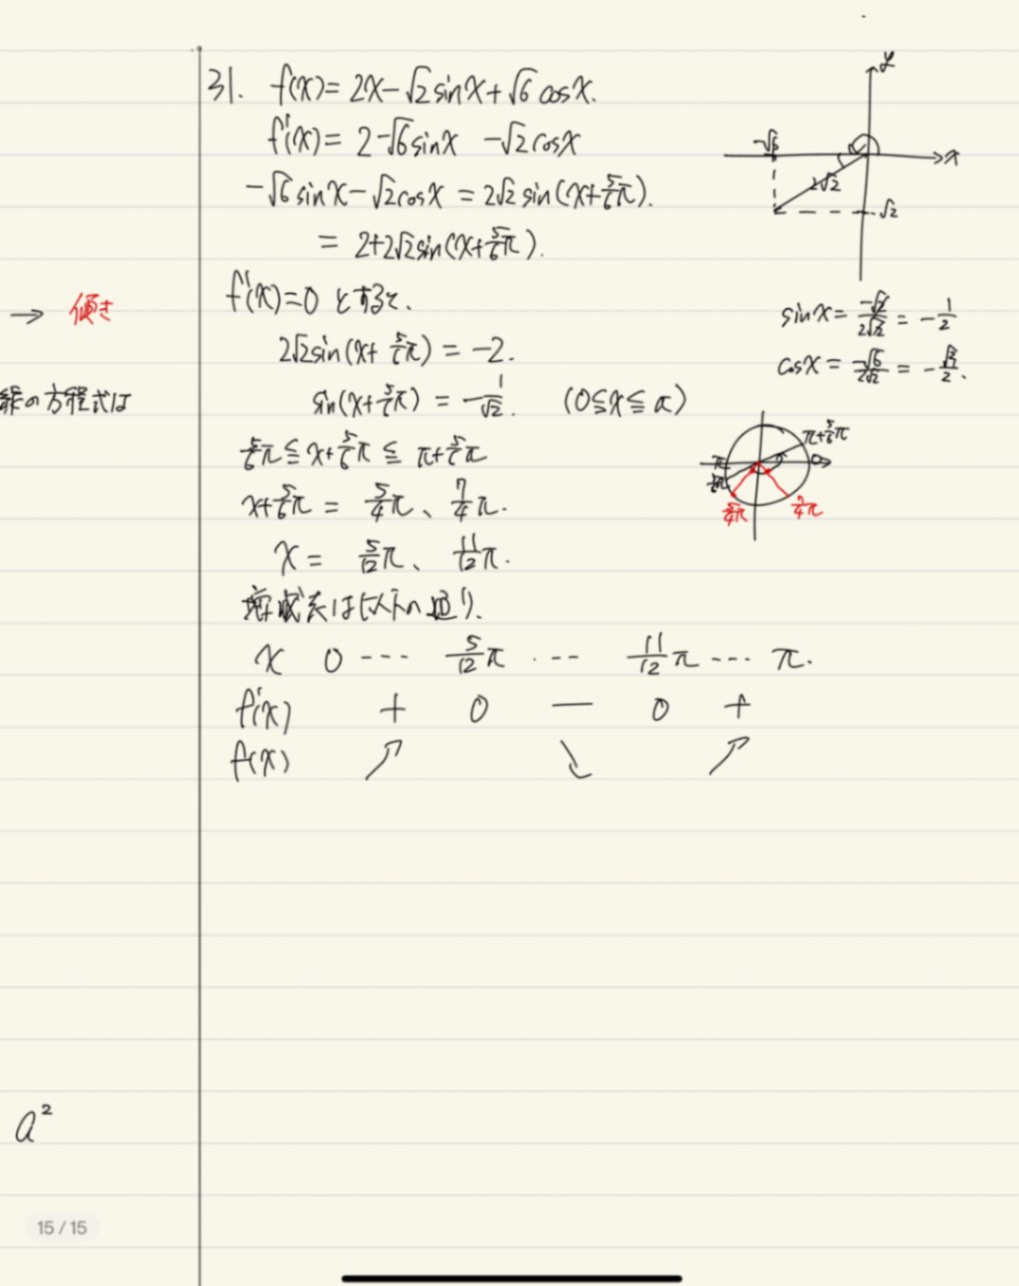 31. f(x)= 2x-√2 sinx+√6 cosx.
f'(x)= 2-√6 sinx -√2 cosx
-√6 sinx-√2cosx = 2√2 sin(x+5/6π).
= 2+2√2sin(x+5/6π).
f'(x)=0 とすると、
2√2sin(x+5/6π) = -2.
sin(x+5/6π) = -1/√2. (0≦x≦π)
5/6π ≦ x+5/6π ≦ π+5/6π
x+5/6π = 5/4π、7/4π.
x= 5/12π、11/12π.
増減表は以下の通り.
x 0 ... 5/12π ... 11/12π ... π.
f'(x) + 0 - 0 +
f(x) ↗ ↘ ↗
y
-√6
x
2√2
-√2
sinx= -√2/2√2 = -1/2
cosx = -√6/2√2 = -√3/2.
π+5/6π
π
0
5/6π
5/4π
7/4π
→ 傾き
の方程式は
a²
15 / 15